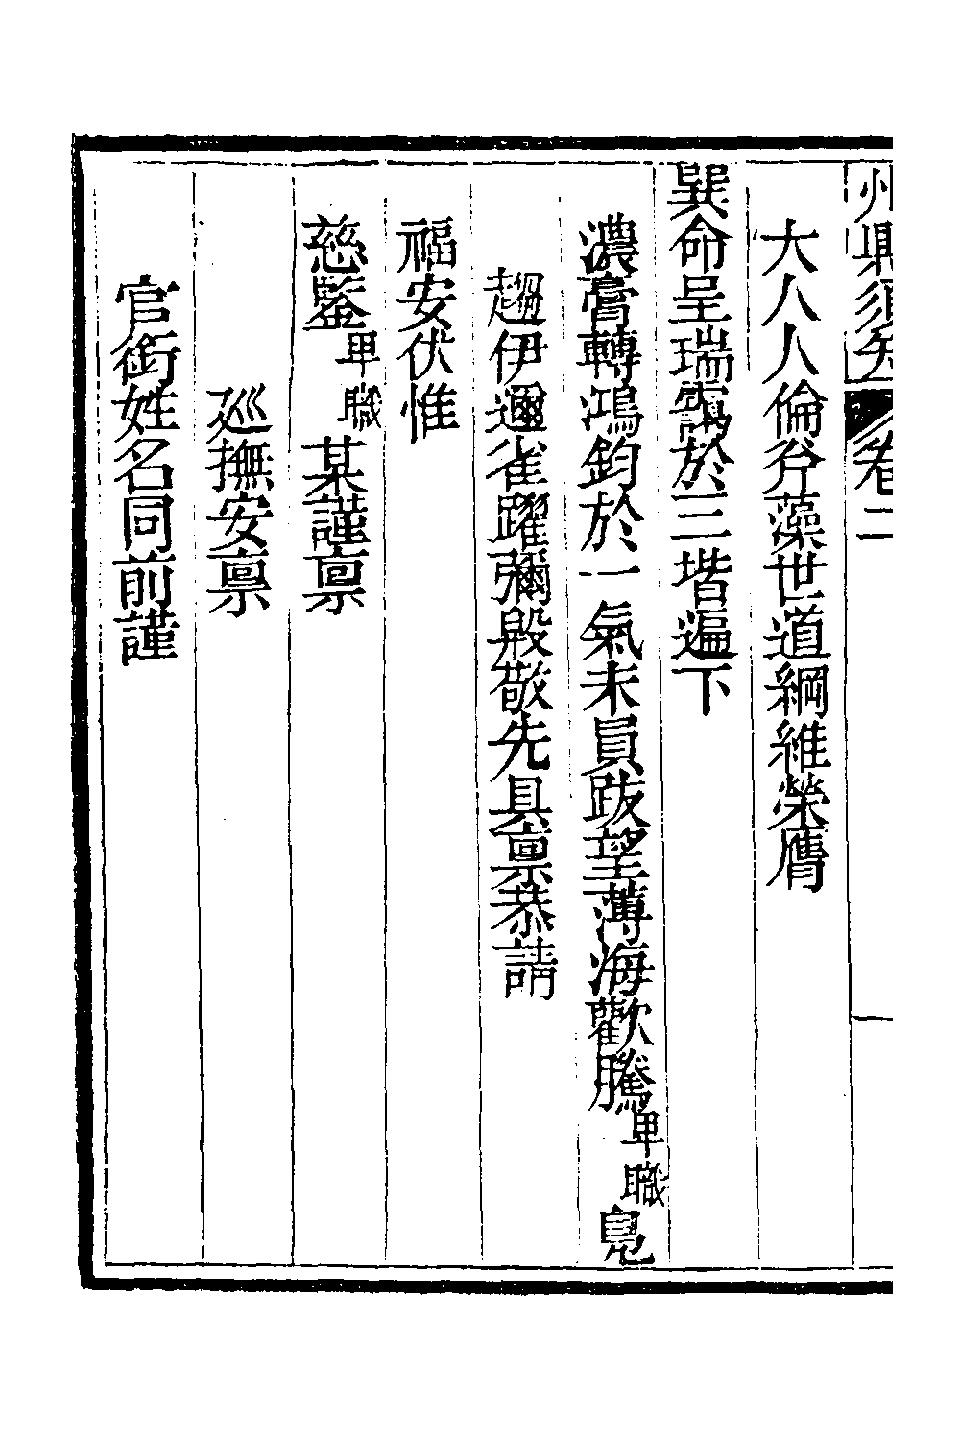 州縣須知 卷二 一
大人人倫冰藻世道綱維榮膺
巽命呈瑞靄於三階遍下
濃膏轉鴻鈞於一氣未員跋望薄海歡騰卑職鳧
趨伊邇雀躍彌殷敬先具禀恭請
福安伏惟
慈鑒卑職某謹禀
廵撫安禀
官銜姓名同前謹